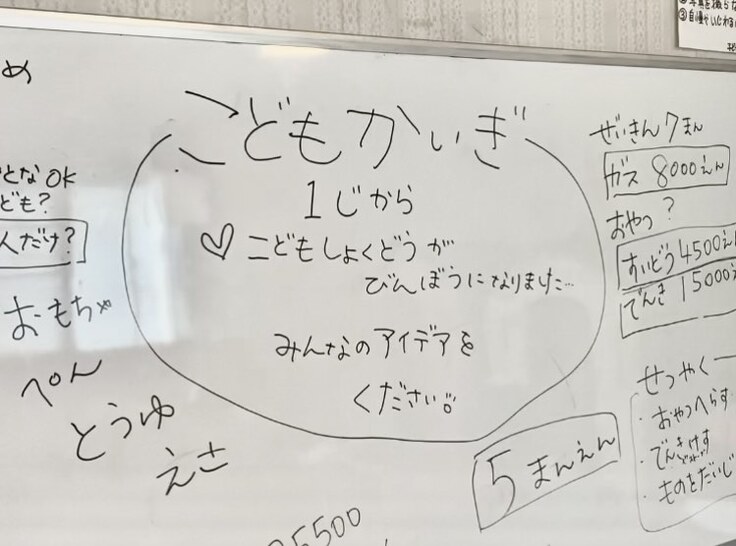 こどもかいぎ
1じから
♡こどもしょくどうが
びんぼうになりました…
みんなのアイデアを
ください。
め
となOK
ども?
人だけ?
おもちゃ
ぺん
とうゆ
えさ
ぜいきん7まん
ガス 8000えん
おやつ?
すいどう4500えん
でんき 15000え
せつやくー
・おやつへらす
・でんきけす
・ものをだいじ
5まんえん
5500